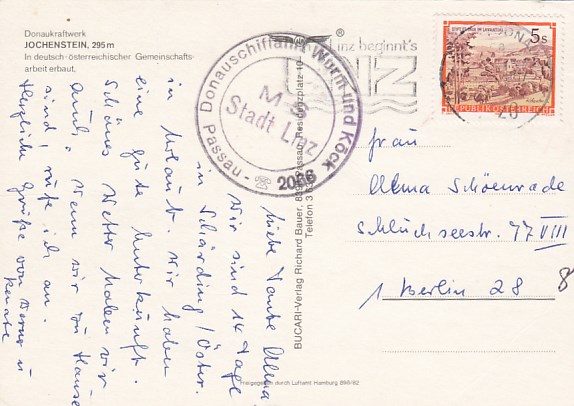 Donaukraftwerk
JOCHENSTEIN, 295 m
In deutsch-österreichischer Gemeinschafts-
arbeit erbaut.
Donauschiffahrt Wurm und Köck
Passau
M S
Stadt Linz
2066
Linz beginnt's
LINZ
5s
REPUBLIK ÖSTERREICH
BUCARI-Verlag Richard Bauer, Passau, Residenzplatz 10
Telefon
Freigegeben durch Luftamt Hamburg 896/82
Liebe Tante Alma
Wir sind 14 Tage
in Schärding/Österr.
in Urlaub. Wir haben
eine gute Unterkunft.
Schönes Wetter haben wir
auch, Wenn wir zu Hause
sind, rufe ich an.
Herzliche Grüße von Werner u
Renate
Frau
Alma Schöenrade
Schluchseestr. 77 VIII
1 Berlin 28
8